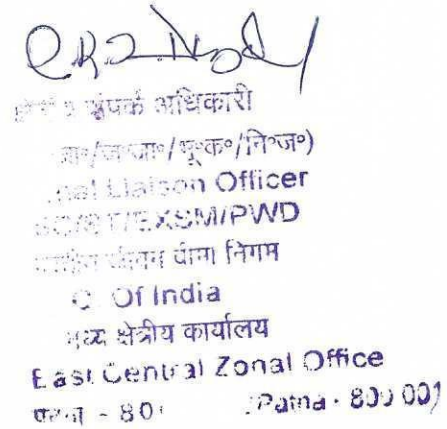 संपर्क अधिकारी
जा॰/ज॰जा॰/भू॰क॰/नि॰ज॰)
nal Liaison Officer
SC/ST/EXSM/PWD
जीवन बीमा निगम
Of India
मध्य क्षेत्रीय कार्यालय
East Central Zonal Office
पटना - 80 (Patna - 800 001